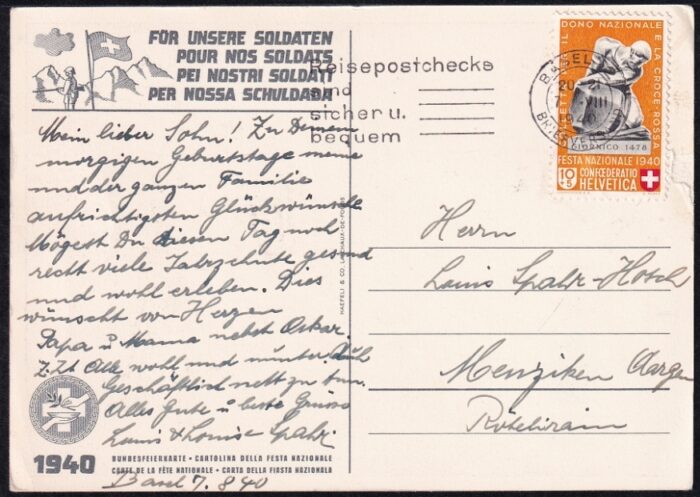 FÖR UNSERE SOLDATEN
POUR NOS SOLDATS
PEI NOSTRI SOLDATI
PER NOSSA SCHULDADA
Reisepostchecks
sind
sicher u.
bequem
BASEL
20-21
7. VIII
BRIEFVERS
IL DONO NAZIONALE E LA CROCE-ROSSA
GIORNICO 1478
FESTA NAZIONALE 1940
10+5 CONFŒDERATIO
HELVETICA
Mein lieber Sohn! Zu Deinem
morgigen Geburtstage meine
und der ganzen Familie
aufrichtigsten Glückwünsche
Mögest Du diesen Tag noch
recht viele Jahrzehnte gesund
und wohl erleben. Dies
wünscht von Herzen
Papa u Mama nebst Oskar
z. Zt. Alle wohl und munter
Geschäftlich nett zu tun.
Alles Gute u beste Grüsse
Louis & Louise Spahr
Herrn
Louis Spahr-Hotsch
Menziken Aargau
HAEFELI & CO. LA CHAUX-DE-FONDS
1940
BUNDESFEIERKARTE • CARTOLINA DELLA FESTA NAZIONALE
CARTE DE LA FÊTE NATIONALE • CARTA DELLA FIASTA NAZIONALA
Basel 7.8.40